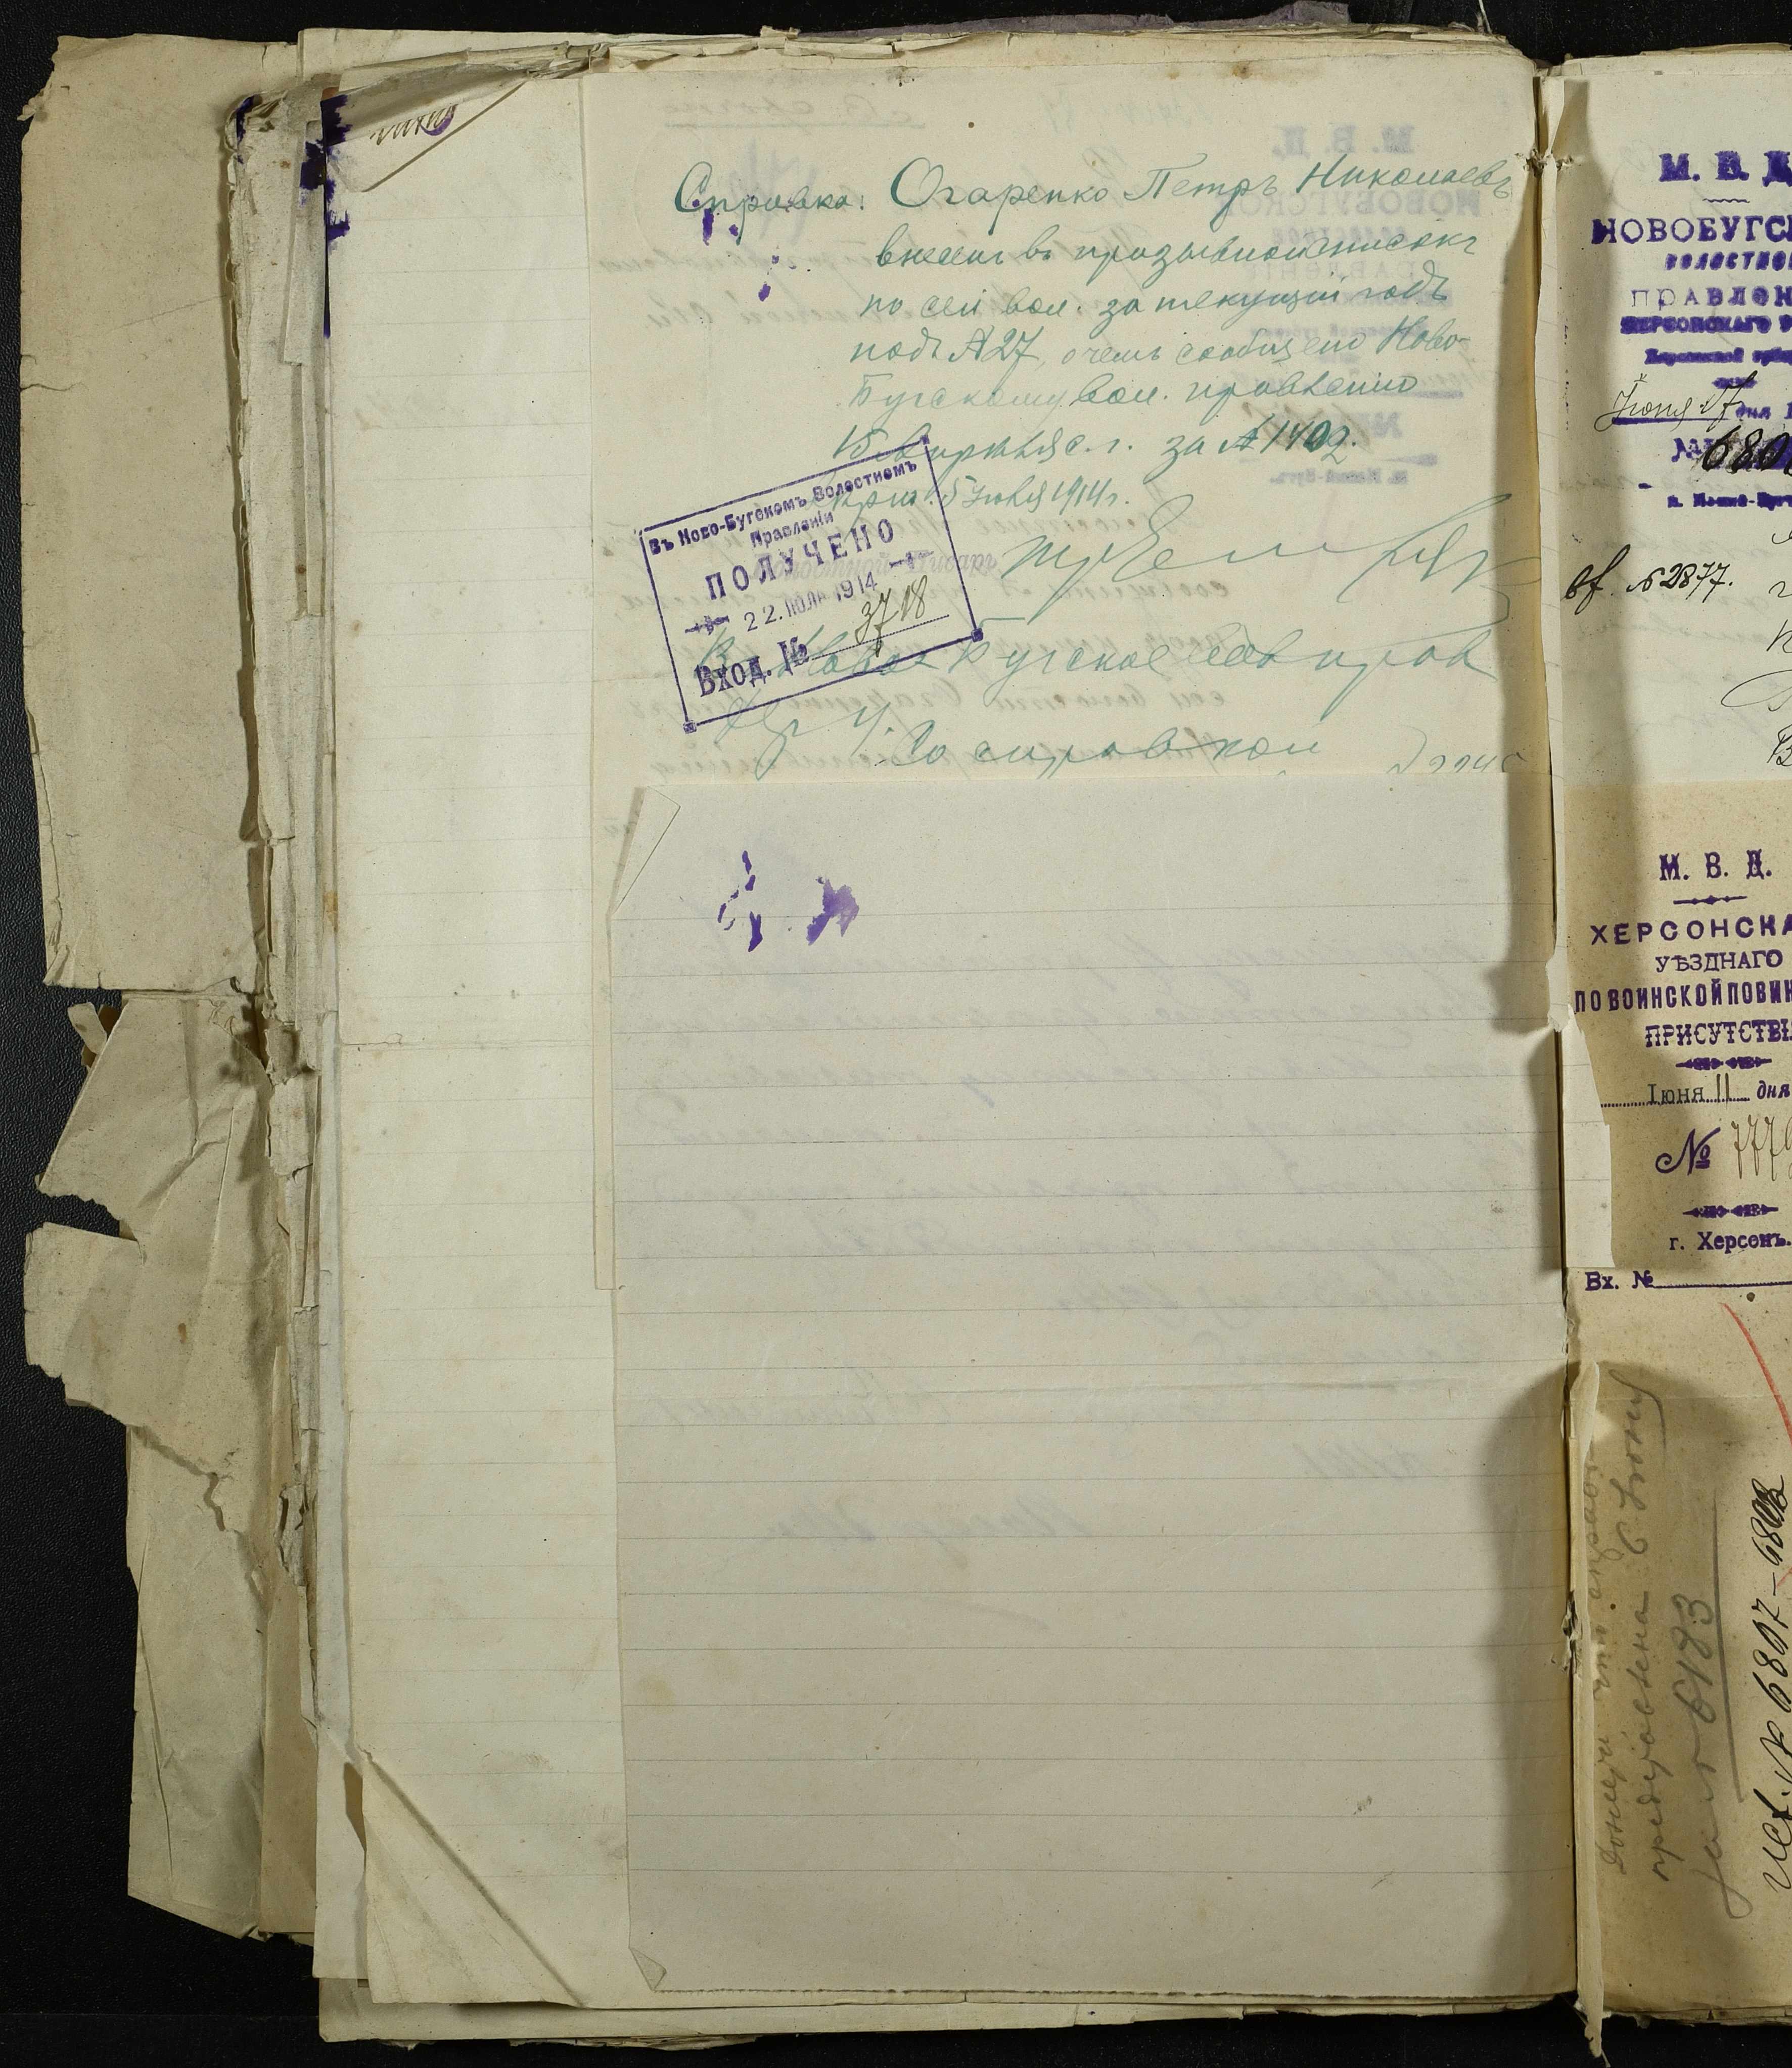 Справка: Огаренко Петръ Николаевъ
внесенъ въ призывной списокъ
по сей вол. за текущій годъ
подъ № 27, о чемъ сообщено Ново-
Бугскому вол. правленію
15 Апрѣля с. г. за № 1402.
5 Іюля 1914 г.
Въ Ново-Бугскомъ Волостномъ
Правленіи
ПОЛУЧЕНО
22. ІЮЛЯ 1914
Вход. № 3718
Волостной Писарь
В Ново Бугское вол прав
Со справкой
М. В. Д.
НОВОБУГСК
ВОЛОСТНО
ПРАВЛЕН
ХЕРСОНСКАГО У
Херсонской губе
Іюня 17 дня 1
№ 680
п. Новый-Бугъ
вх. № 2877.
М. В. Д.
ХЕРСОНСКА
УѢЗДНАГО
ПО ВОИНСКОЙ ПОВИН
ПРИСУТСТВІ
Іюня 11 дня
№ 777
г. Херсонъ.
Вх. №
что
представлена 6 Іюня
за № 6483
исх. № 6807-6808